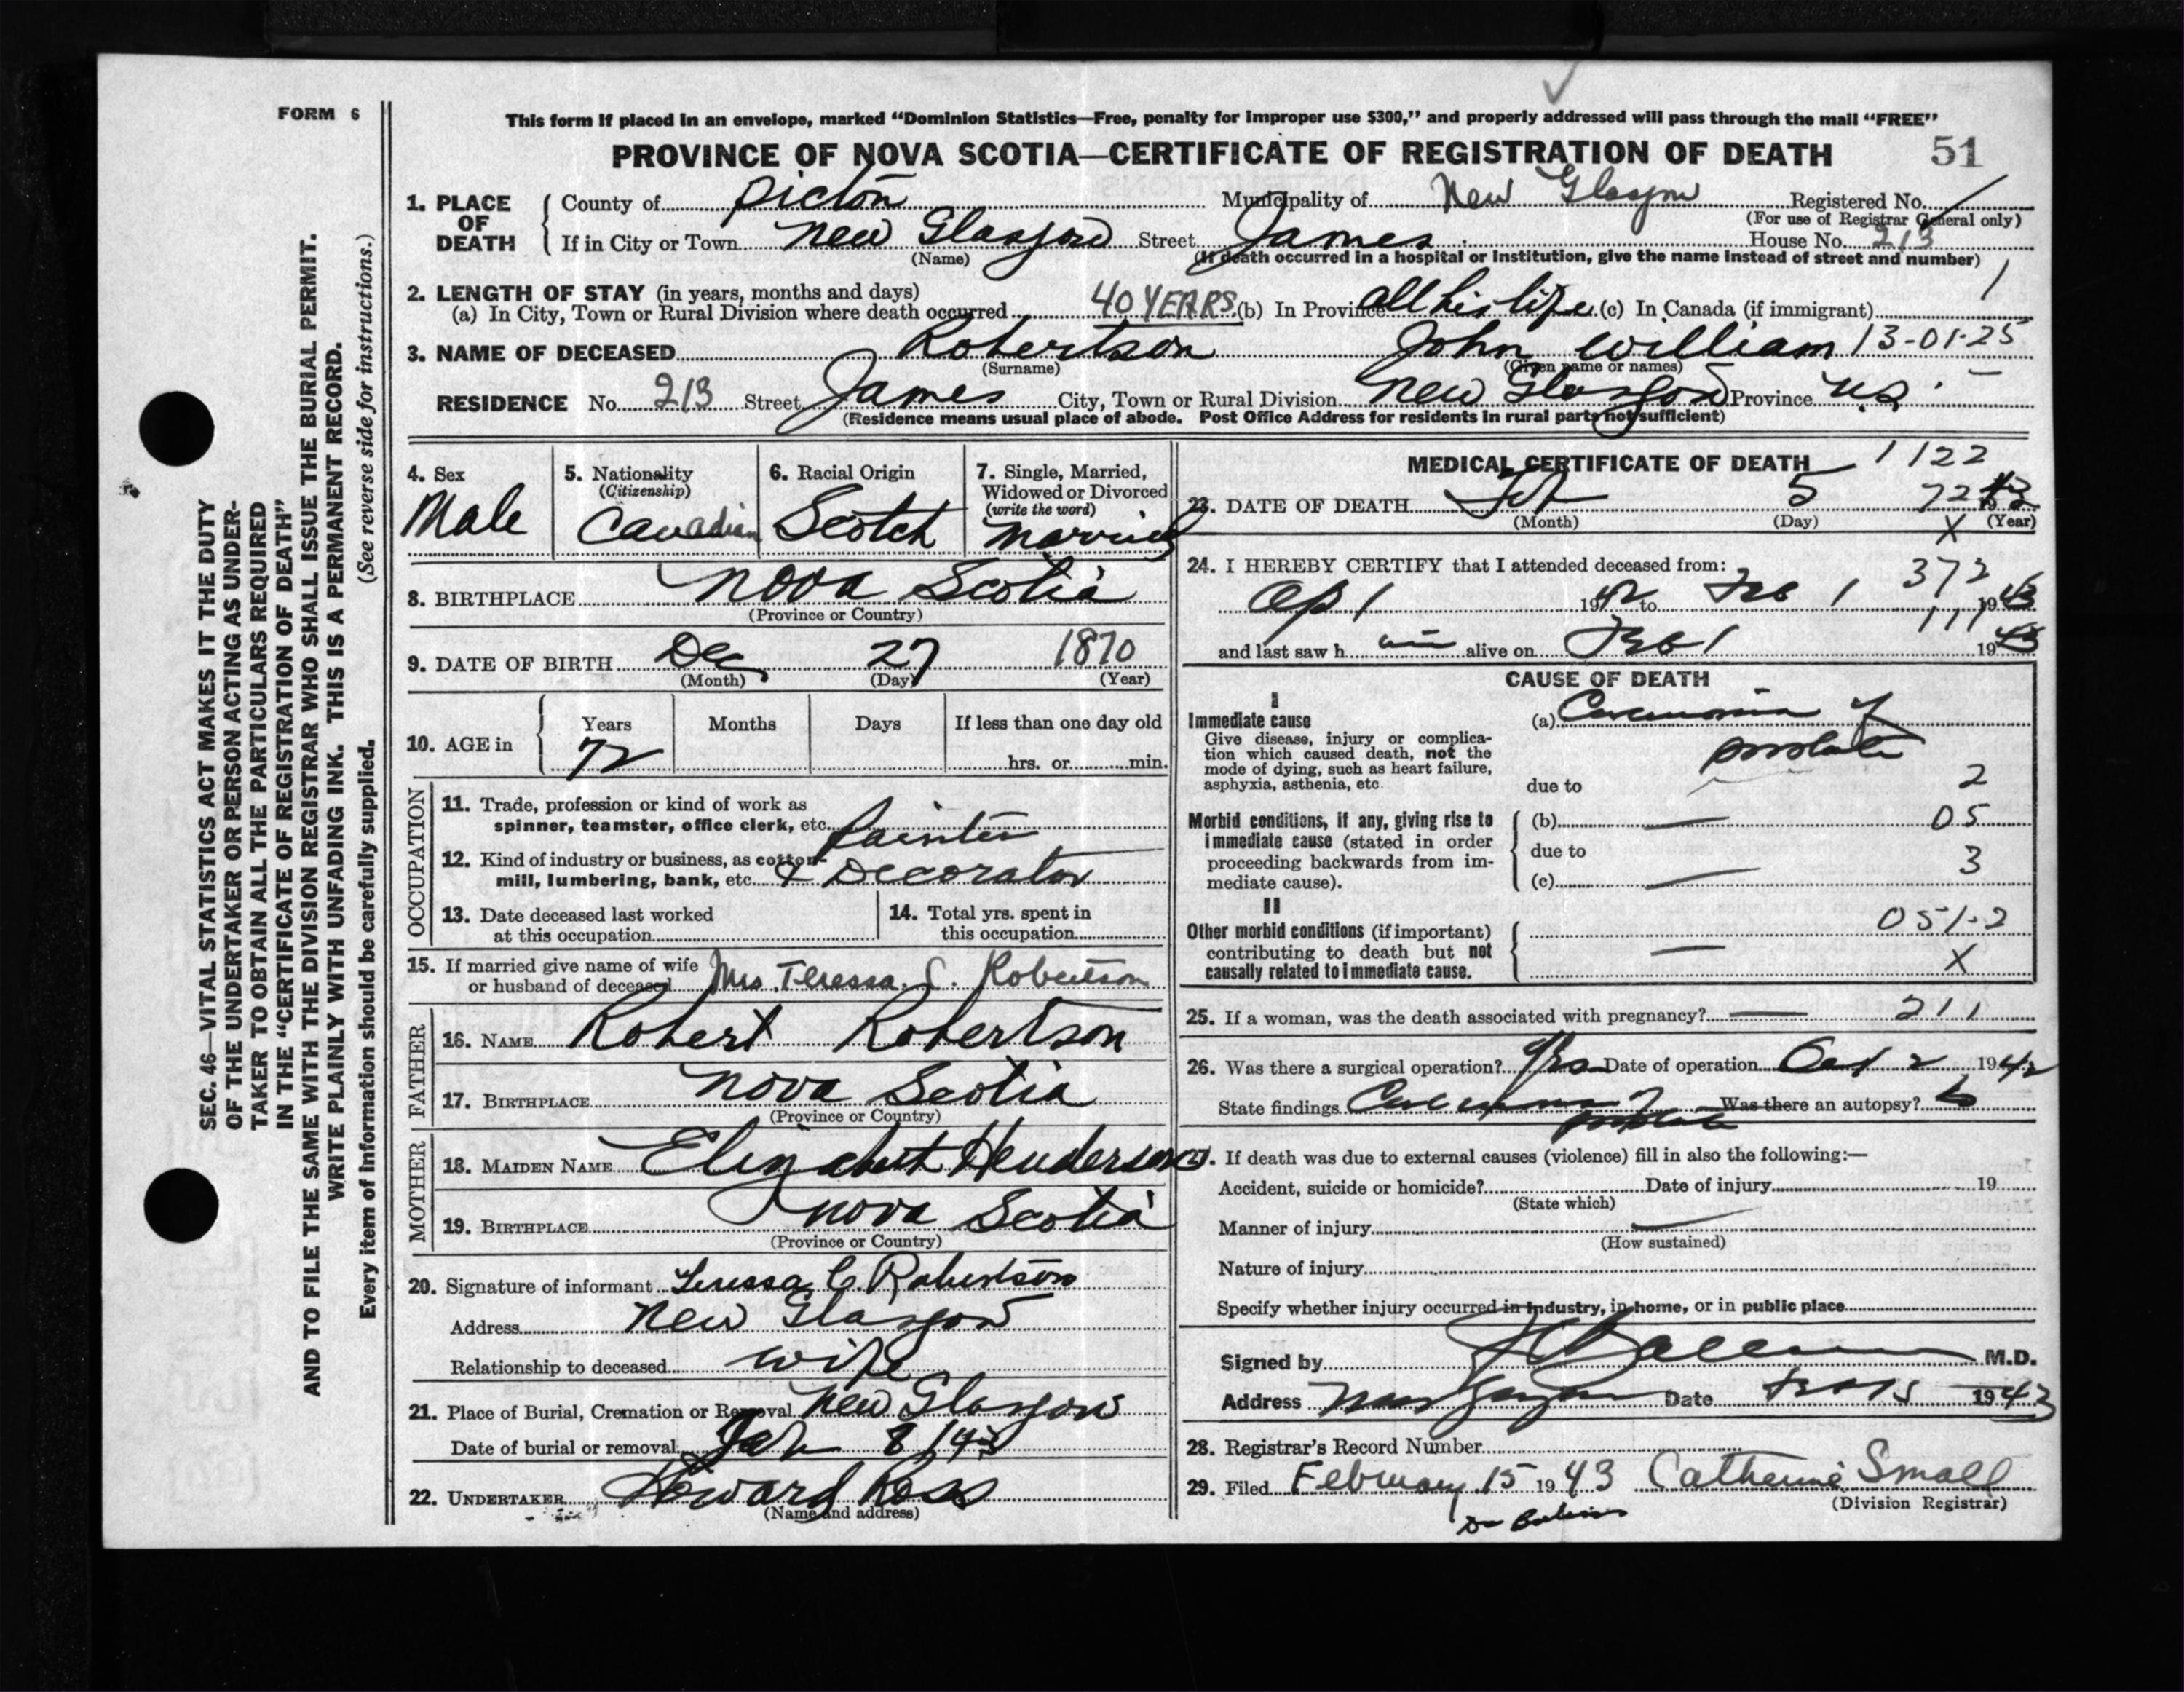 FORM 6
This form if placed in an envelope, marked “Dominion Statistics—Free, penalty for improper use $300,” and properly addressed will pass through the mail “FREE”
PROVINCE OF NOVA SCOTIA—CERTIFICATE OF REGISTRATION OF DEATH 51
SEC. 46—VITAL STATISTICS ACT MAKES IT THE DUTY
OF THE UNDERTAKER OR PERSON ACTING AS UNDER-
TAKER TO OBTAIN ALL THE PARTICULARS REQUIRED
IN THE “CERTIFICATE OF REGISTRATION OF DEATH”
AND TO FILE THE SAME WITH THE DIVISION REGISTRAR WHO SHALL ISSUE THE BURIAL PERMIT.
WRITE PLAINLY WITH UNFADING INK. THIS IS A PERMANENT RECORD.
Every item of Information should be carefully supplied. (See reverse side for instructions.)
1. PLACE OF DEATH
County of Pictou Municipality of New Glasgow Registered No.
(For use of Registrar General only)
If in City or Town New Glasgow Street James House No. 213
(Name) (If death occurred in a hospital or institution, give the name instead of street and number)
2. LENGTH OF STAY (in years, months and days)
(a) In City, Town or Rural Division where death occurred 40 YEARS (b) In Province all his life (c) In Canada (if immigrant) 1
3. NAME OF DECEASED Robertson John William 13-01-25
(Surname) (Given name or names)
RESIDENCE No. 213 Street James City, Town or Rural Division New Glasgow Province N.S.
(Residence means usual place of abode. Post Office Address for residents in rural parts not sufficient)
4. Sex
Male
5. Nationality
(Citizenship)
Canadian
6. Racial Origin
Scotch
7. Single, Married,
Widowed or Divorced
(write the word)
Married
8. BIRTHPLACE Nova Scotia
(Province or Country)
9. DATE OF BIRTH Dec 27 1870
(Month) (Day) (Year)
10. AGE in
Years Months Days If less than one day old
72 hrs. or min.
OCCUPATION
11. Trade, profession or kind of work as
spinner, teamster, office clerk, etc. Painter
12. Kind of industry or business, as cotton-
mill, lumbering, bank, etc. & Decorator
13. Date deceased last worked
at this occupation
14. Total yrs. spent in
this occupation
15. If married give name of wife
or husband of deceased Mrs. Teressa C. Robertson
FATHER
16. NAME Robert Robertson
17. BIRTHPLACE Nova Scotia
(Province or Country)
MOTHER
18. MAIDEN NAME Elizabeth Henderson
19. BIRTHPLACE Nova Scotia
(Province or Country)
20. Signature of informant Teressa C. Robertson
Address New Glasgow
Relationship to deceased wife
21. Place of Burial, Cremation or Removal New Glasgow
Date of burial or removal Feb 8/43
22. UNDERTAKER Howard Ross
(Name and address)
MEDICAL CERTIFICATE OF DEATH 1122
23. DATE OF DEATH Feb 5 72 1943
(Month) (Day) X (Year)
24. I HEREBY CERTIFY that I attended deceased from: 372
Ap 1 1942 to Feb 1 1943
111
and last saw him alive on Feb 1 1943
CAUSE OF DEATH
I
Immediate cause
Give disease, injury or complica-
tion which caused death, not the
mode of dying, such as heart failure,
asphyxia, asthenia, etc.
(a) Carcinoma of
prostate
due to 2
Morbid conditions, if any, giving rise to
immediate cause (stated in order
proceeding backwards from im-
mediate cause).
(b) 05
due to 3
(c)
II
Other morbid conditions (if important)
contributing to death but not
causally related to immediate cause.
051-2
X
25. If a woman, was the death associated with pregnancy? — 211
26. Was there a surgical operation? Yes Date of operation Oct 2 1942
State findings Carcinoma of prostate Was there an autopsy?
27. If death was due to external causes (violence) fill in also the following:—
Accident, suicide or homicide? Date of injury 19
(State which)
Manner of injury
(How sustained)
Nature of injury
Specify whether injury occurred in industry, in home, or in public place
Signed by M.D.
Address New Glasgow Date Feb 15 1943
28. Registrar's Record Number
29. Filed February 15 1943 Catherine Small
(Division Registrar)